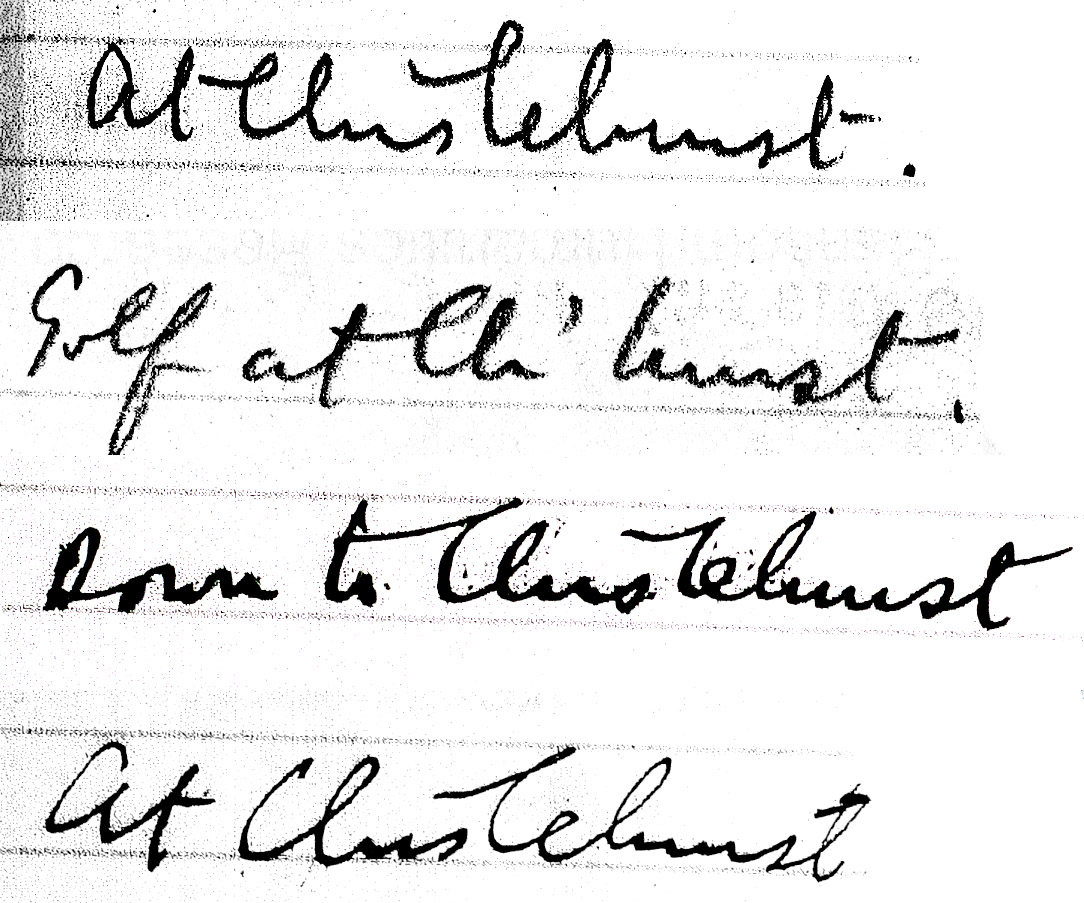 At Chislehurst.
Golf at Chi'hurst.
Down to Chislehurst
At Chislehurst